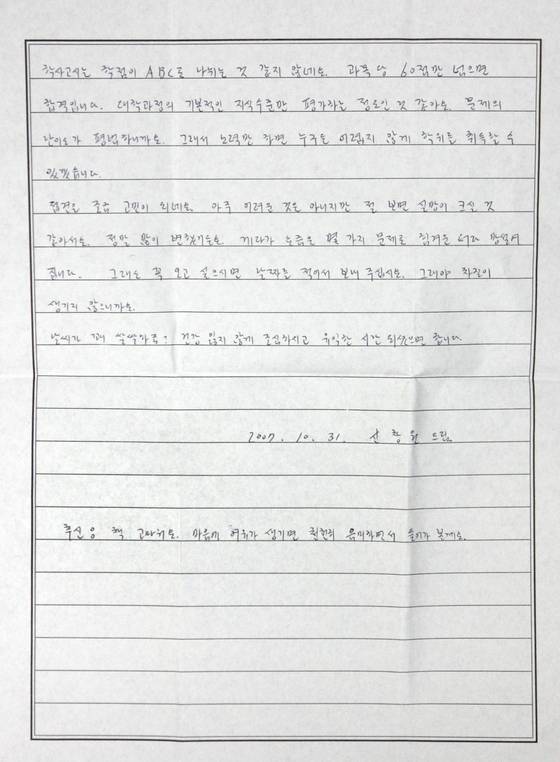 학사고시는 학점이 ABC로 나뉘는 것 같지 않네요. 과목당 60점만 넘으면
합격입니다. 대학과정의 기본적인 지식수준만 평가하는 정도인 것 같아요. 문제의
난이도가 평범하니까요. 그래서 노력만 하면 누구든 어렵지 않게 학위를 취득할 수
있겠습니다.
접견은 조금 고민이 되네요. 아주 어려운 것은 아니지만 절 보면 실망이 크실 것
같아서요. 정말 많이 변했거든요. 게다가 요즘은 몇 가지 문제로 힘겨운 터라 망설여
집니다. 그래도 꼭 오고 싶으시면 날짜를 적어서 보내 주십시오. 그래야 차질이
생기지 않으니까요.
날씨가 꽤 쌀쌀하죠? 건강 잃지 않게 조심하시고 유익한 시간 되셨으면 합니다.
2007. 10. 31. 신창원 드림
추신 책 고마워요. 마음에 여유가 생기면 천천히 음미하면서 볼게요.